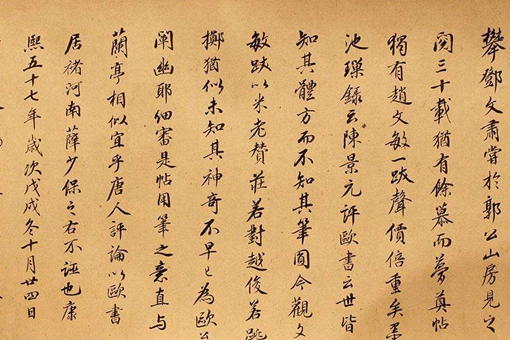 攀鄧文肅嘗於郭公山房見之
閱三十載猶有餘慕而夢真帖
獨有趙文敏一跋聲價倍重矣墨
池璅錄云陳景元評歐書云世皆
知其體方而不知其筆圓今觀文
敏跋以米老贊莊若對越俊若跳
擲猶似未知其神奇不早已為歐公
闡幽耶細審是帖用筆之意直與
蘭亭相似宜乎唐人評論以歐書
居褚河南薛少保之右不誣也康
熙五十七年歲次戊戌冬十月廿四日